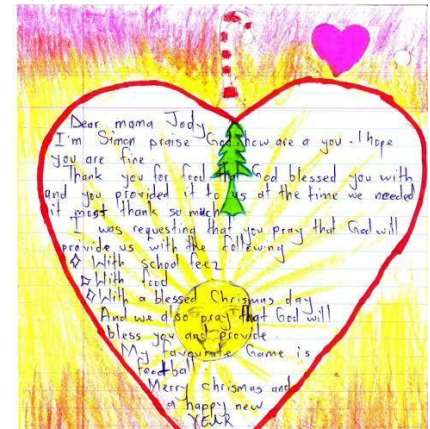 Dear mama Jody
I'm Simon praise God how are a you. I hope
you are fine
Thank you for food that God blessed you with
and you provided it to us at the time we needed
it most thank so much
I was requesting that you pray that God will
provide us with the following
With school feez
With food
With a blessed Chrismas day
And we also pray that God will
bless you and provide.
My favourate Game is
football
Merry chrismas and
a happy new
YEAR